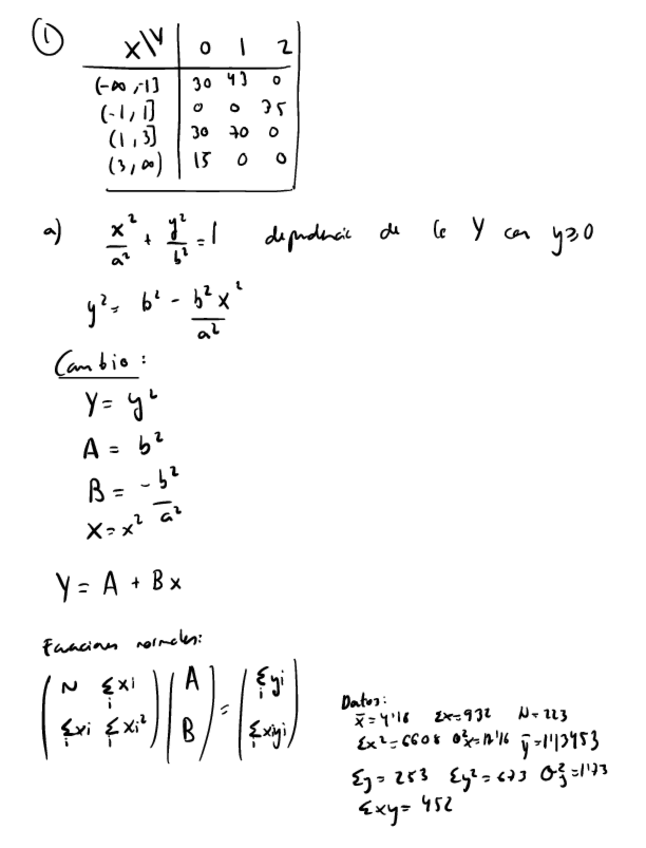 ①
X\Y | 0 1 2
(-∞,-1] 30 43 0
(-1,1] 0 0 75
(1,3] 30 70 0
(3,∞) 15 0 0
a) x²/a² + y²/b² = 1 dependencia de la Y con y≥0
y² = b² - b²x²/a²
Cambio:
Y = y²
A = b²
B = -b²/a²
X = x²
Y = A + Bx
Ecuaciones normales:
(N Σxi) (A) = (Σyi)
(Σxi Σxi²) (B) (Σxiyi)
Datos:
x̄=4'16 Σx=932 N=223
Σx²=6608 σ²x=12'16 ȳ=1'13453
Σy=253 Σy²=673 σ²y=1'73
Σxy=452